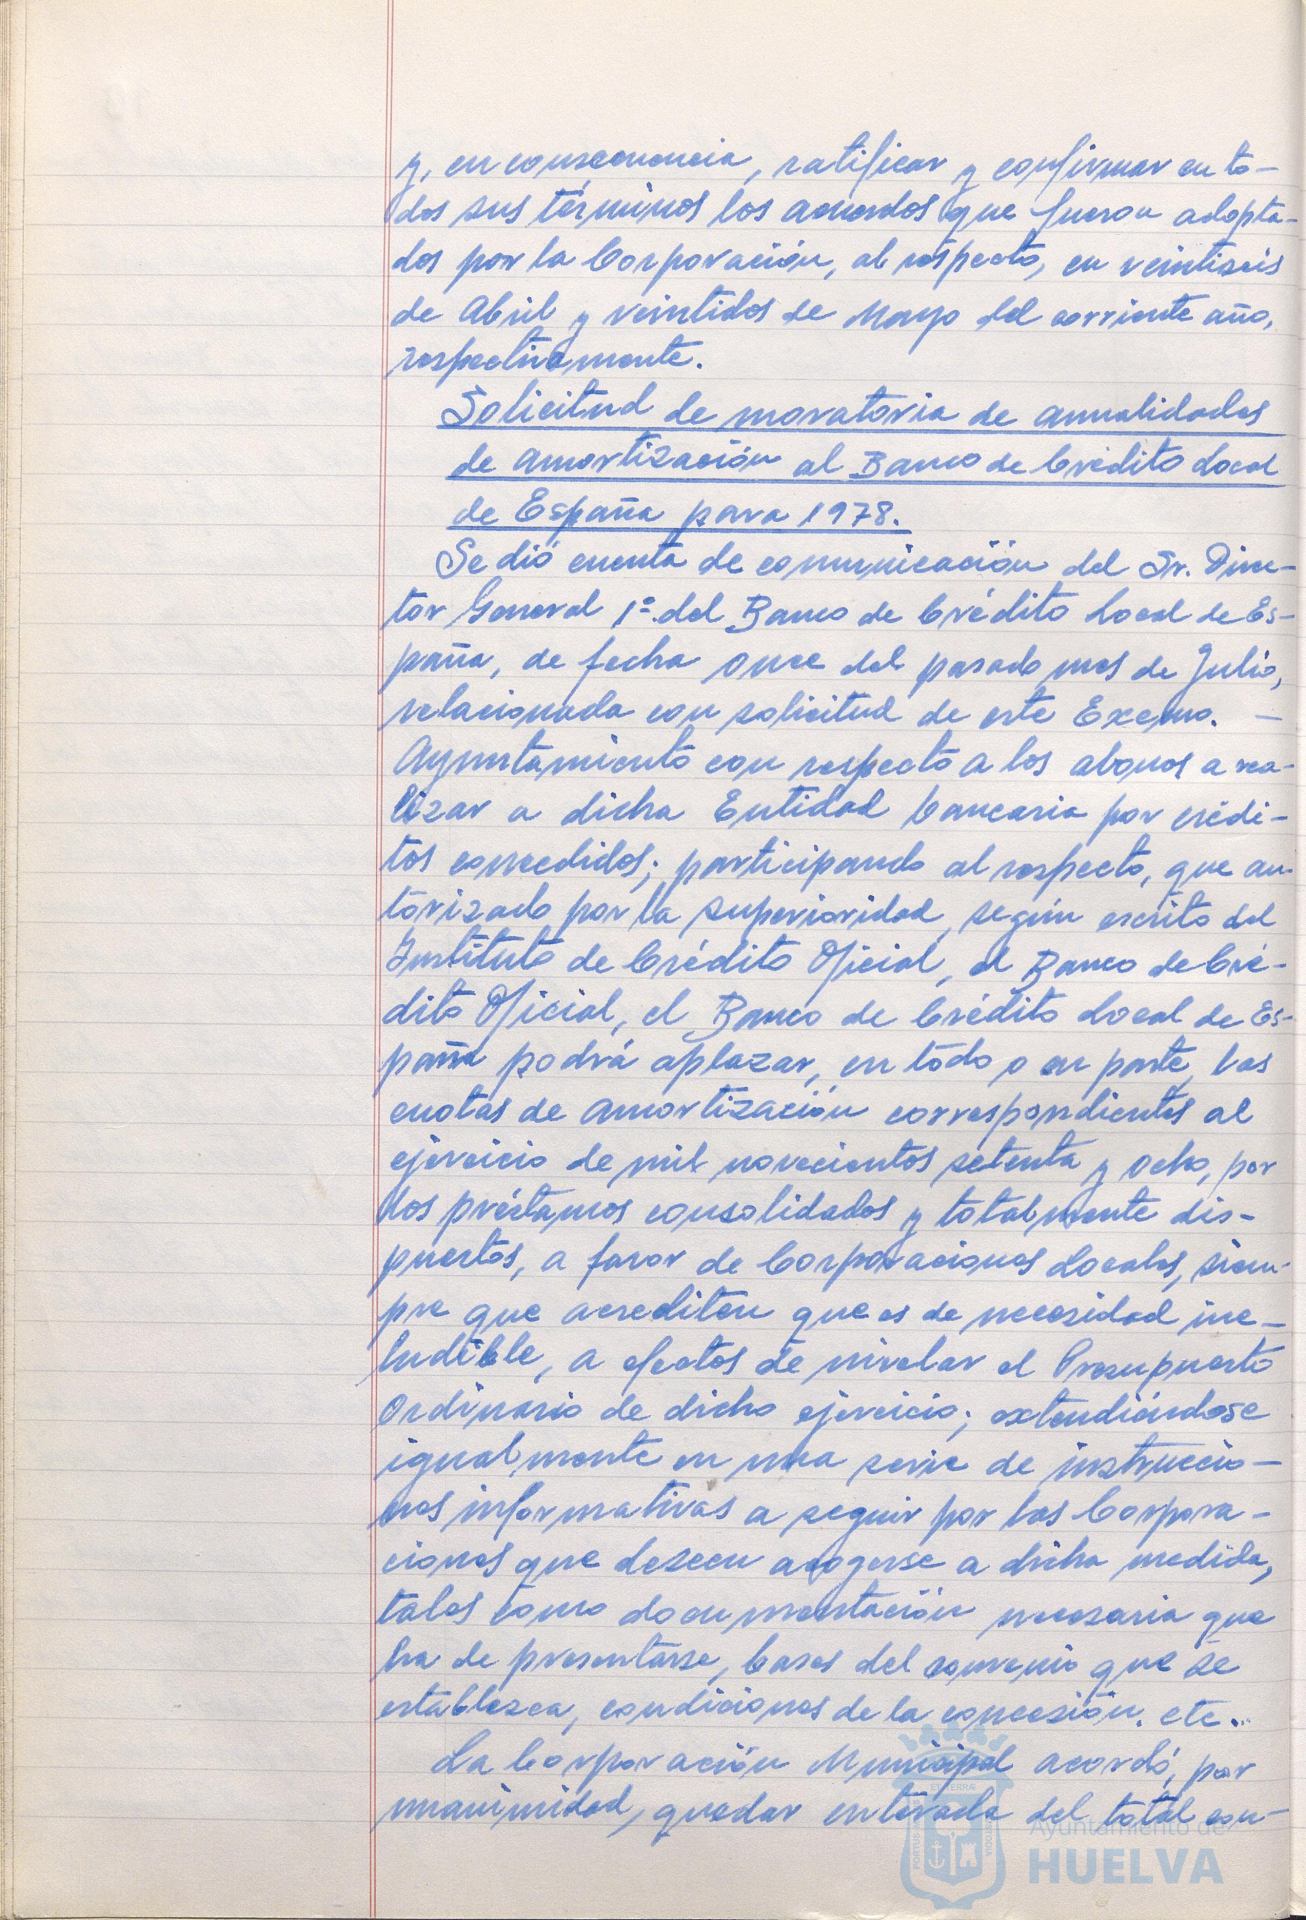 y, en consecuencia, ratificar y confirmar en to-
dos sus términos los acuerdos que fueron adopta-
dos por la Corporación, al respecto, en veintiseis
de Abril y veintidos de Mayo del corriente año,
respectivamente.
Solicitud de moratoria de anualidades
de amortización al Banco de Crédito Local
de España para 1978.
Se dió cuenta de comunicación del Sr. Direc-
tor General 1º. del Banco de Crédito Local de Es-
paña, de fecha once del pasado mes de Julio,
relacionada con solicitud de este Excmo. -
Ayuntamiento con respecto a los abonos a rea-
lizar a dicha Entidad bancaria por crédi-
tos concedidos; participando al respecto, que au-
torizado por la Superioridad, según escrito del
Instituto de Crédito Oficial, el Banco de Cré-
dito Oficial, el Banco de Crédito Local de Es-
paña podrá aplazar, en todo o en parte, las
cuotas de amortización correspondientes al
ejercicio de mil novecientos setenta y ocho, por
los préstamos consolidados y totalmente dis-
puestos, a favor de Corporaciones Locales, siem-
pre que acrediten que es de necesidad ine-
ludible, a efectos de nivelar el Presupuesto
Ordinario de dicho ejercicio; extendiéndose
igualmente en una serie de instruccio-
nes informativas a seguir por las Corpora-
ciones que deseen acogerse a dicha medida,
tales como documentación necesaria que
ha de presentarse, bases del convenio que se
establezca, condiciones de la concesión. etc..
La Corporación Municipal acordó, por
unanimidad, quedar enterada del total con-
Ayuntamiento de
HUELVA